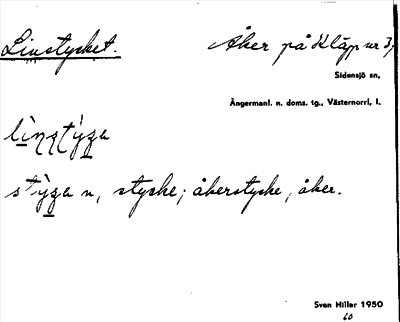 Linstycket. Åker på Kläpp nr 3,
Sidensjö sn,
Ångermanl. n. doms. tg., Västernorrl, l.
n, stycke; åkerstycke, åker.
Sven Hiller 1950
60